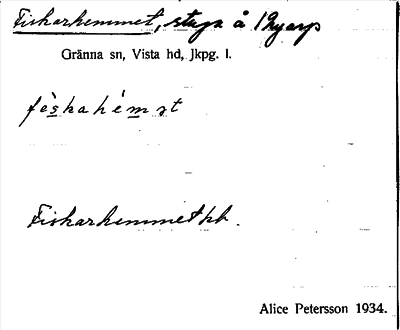 Fiskarhemmet, stuga å Ryarp
Gränna sn, Vista hd, Jkpg. l.
fèskahémət
Fiskarhemmet hb.
Alice Petersson 1934.